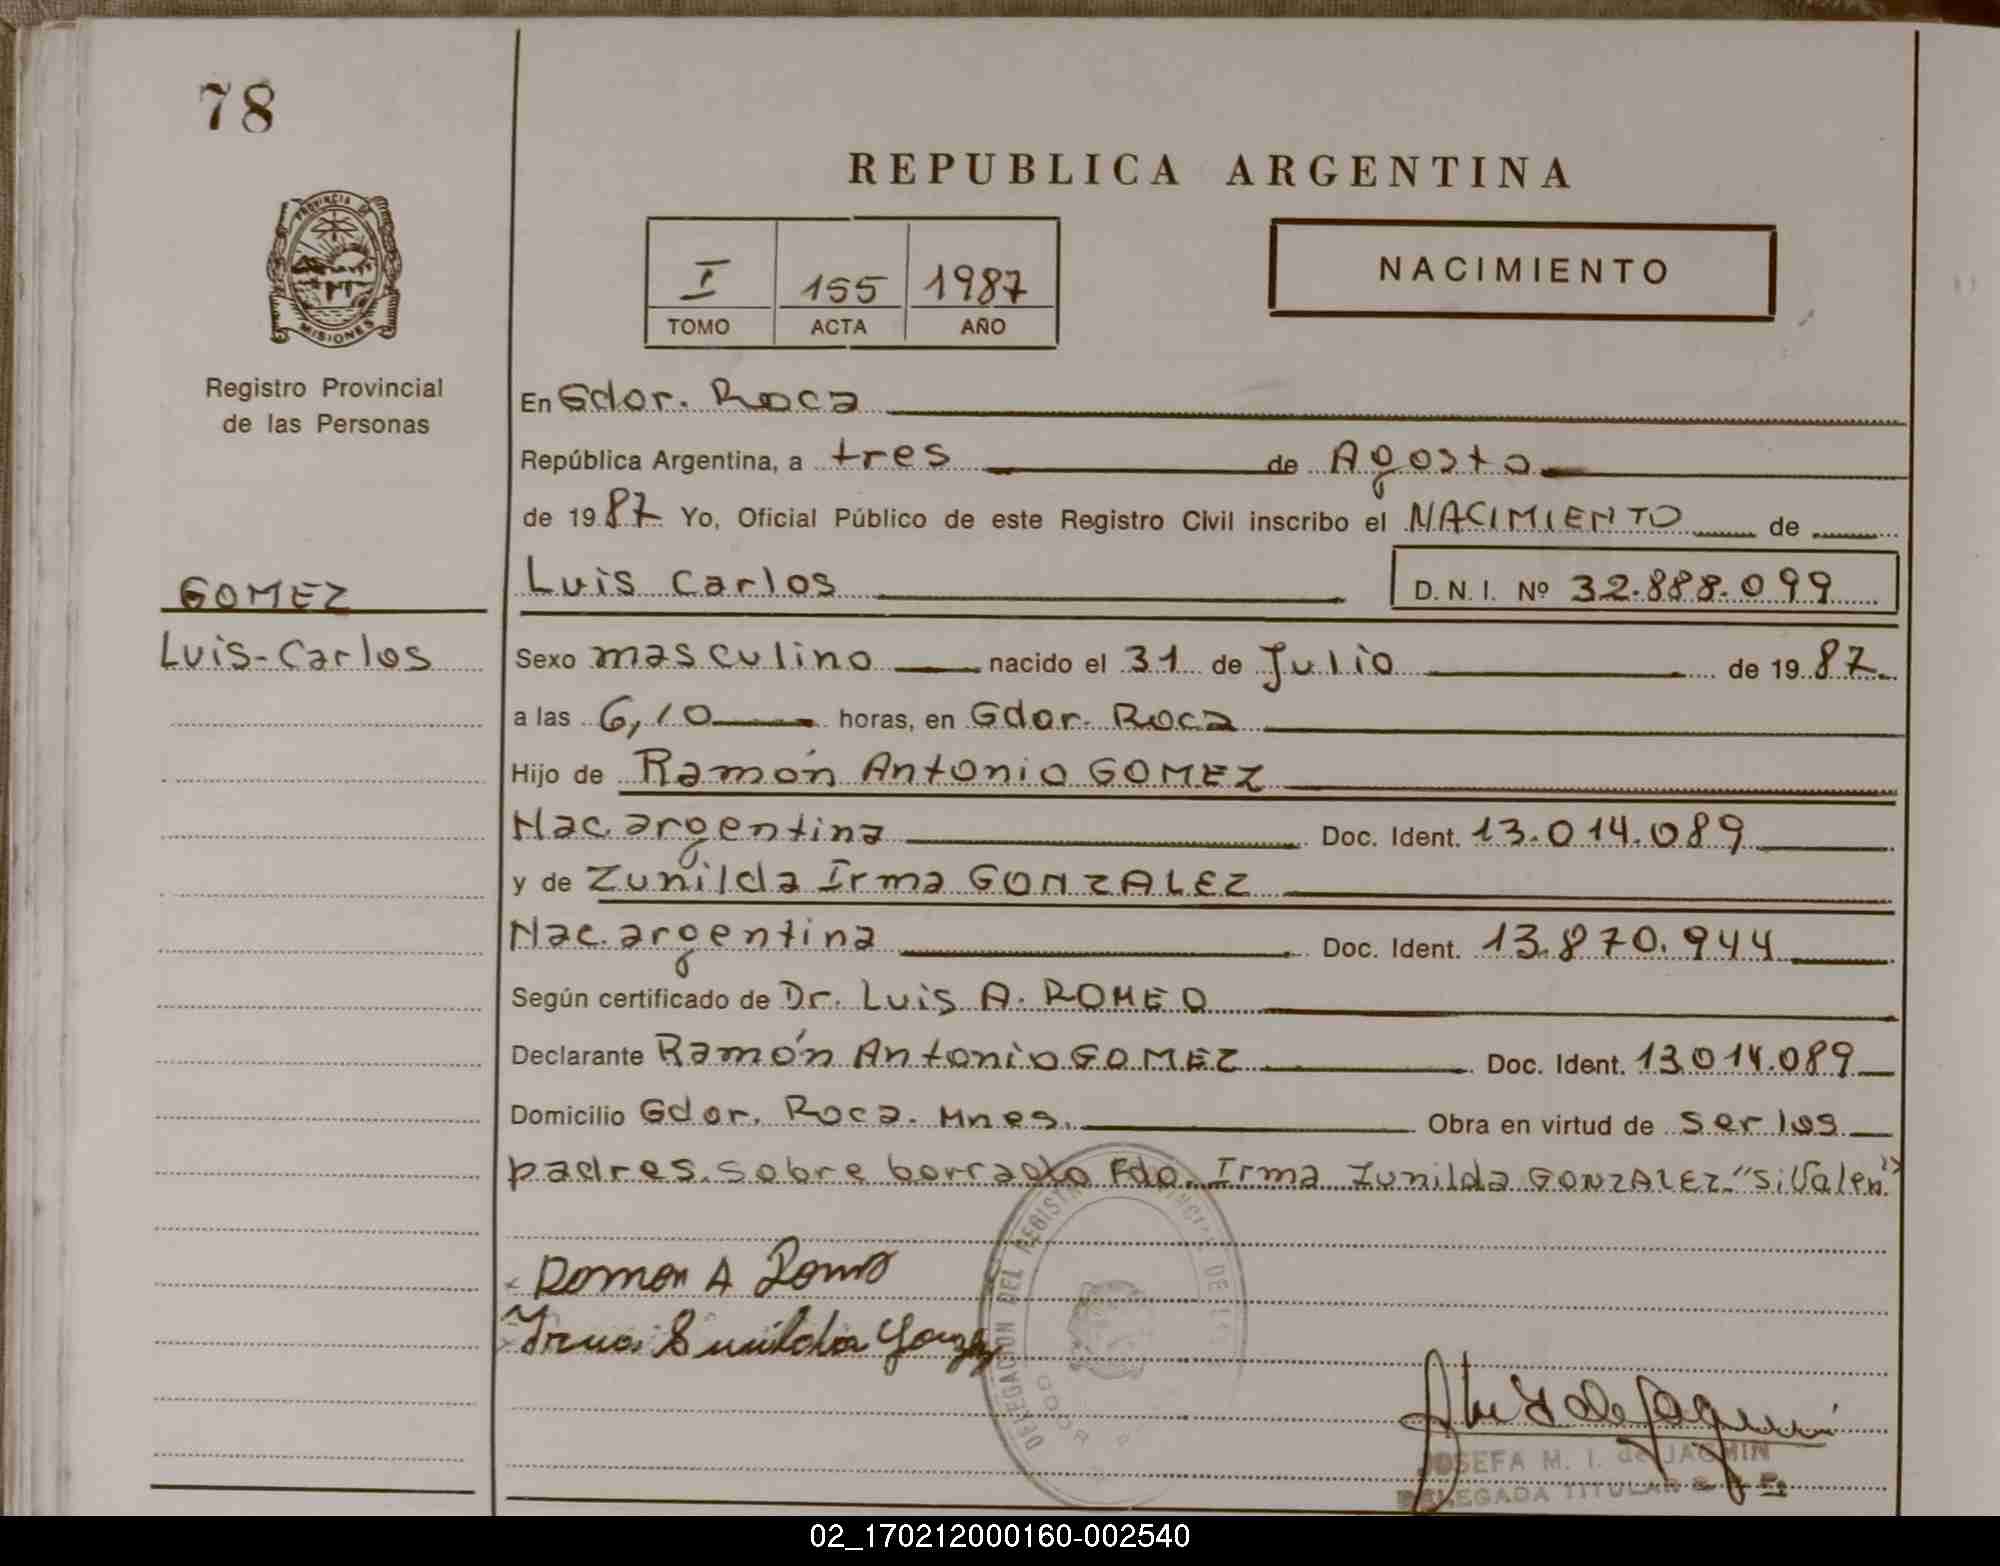 78
REPUBLICA ARGENTINA
PROVINCIA DE
MISIONES
Registro Provincial
de las Personas
I 155 1987
TOMO ACTA AÑO
NACIMIENTO
En Gdor. Roca
República Argentina, a tres de Agosto
de 1987 Yo, Oficial Público de este Registro Civil inscribo el NACIMIENTO de
GOMEZ
Luis-Carlos
Luis Carlos D.N.I. Nº 32.888.099
Sexo masculino nacido el 31 de Julio de 1987
a las 6,10 horas, en Gdor. Roca
Hijo de Ramón Antonio GOMEZ
Nac. argentina Doc. Ident. 13.014.089
y de Zunilda Irma GONZALEZ
Nac. argentina Doc. Ident. 13.870.944
Según certificado de Dr. Luis A. ROMEO
Declarante Ramón Antonio GOMEZ Doc. Ident. 13.014.089
Domicilio Gdor. Roca. Mnes. Obra en virtud de ser los
padres. Sobre borrado Fdo. Irma Zunilda GONZALEZ "Si Valen"
Ramon A
Irma Sunilda
DELEGACION DEL REGISTRO PROVINCIAL DE
JOSEFA M. I. de JACHIN
DELEGADA TITULAR
02_170212000160-002540